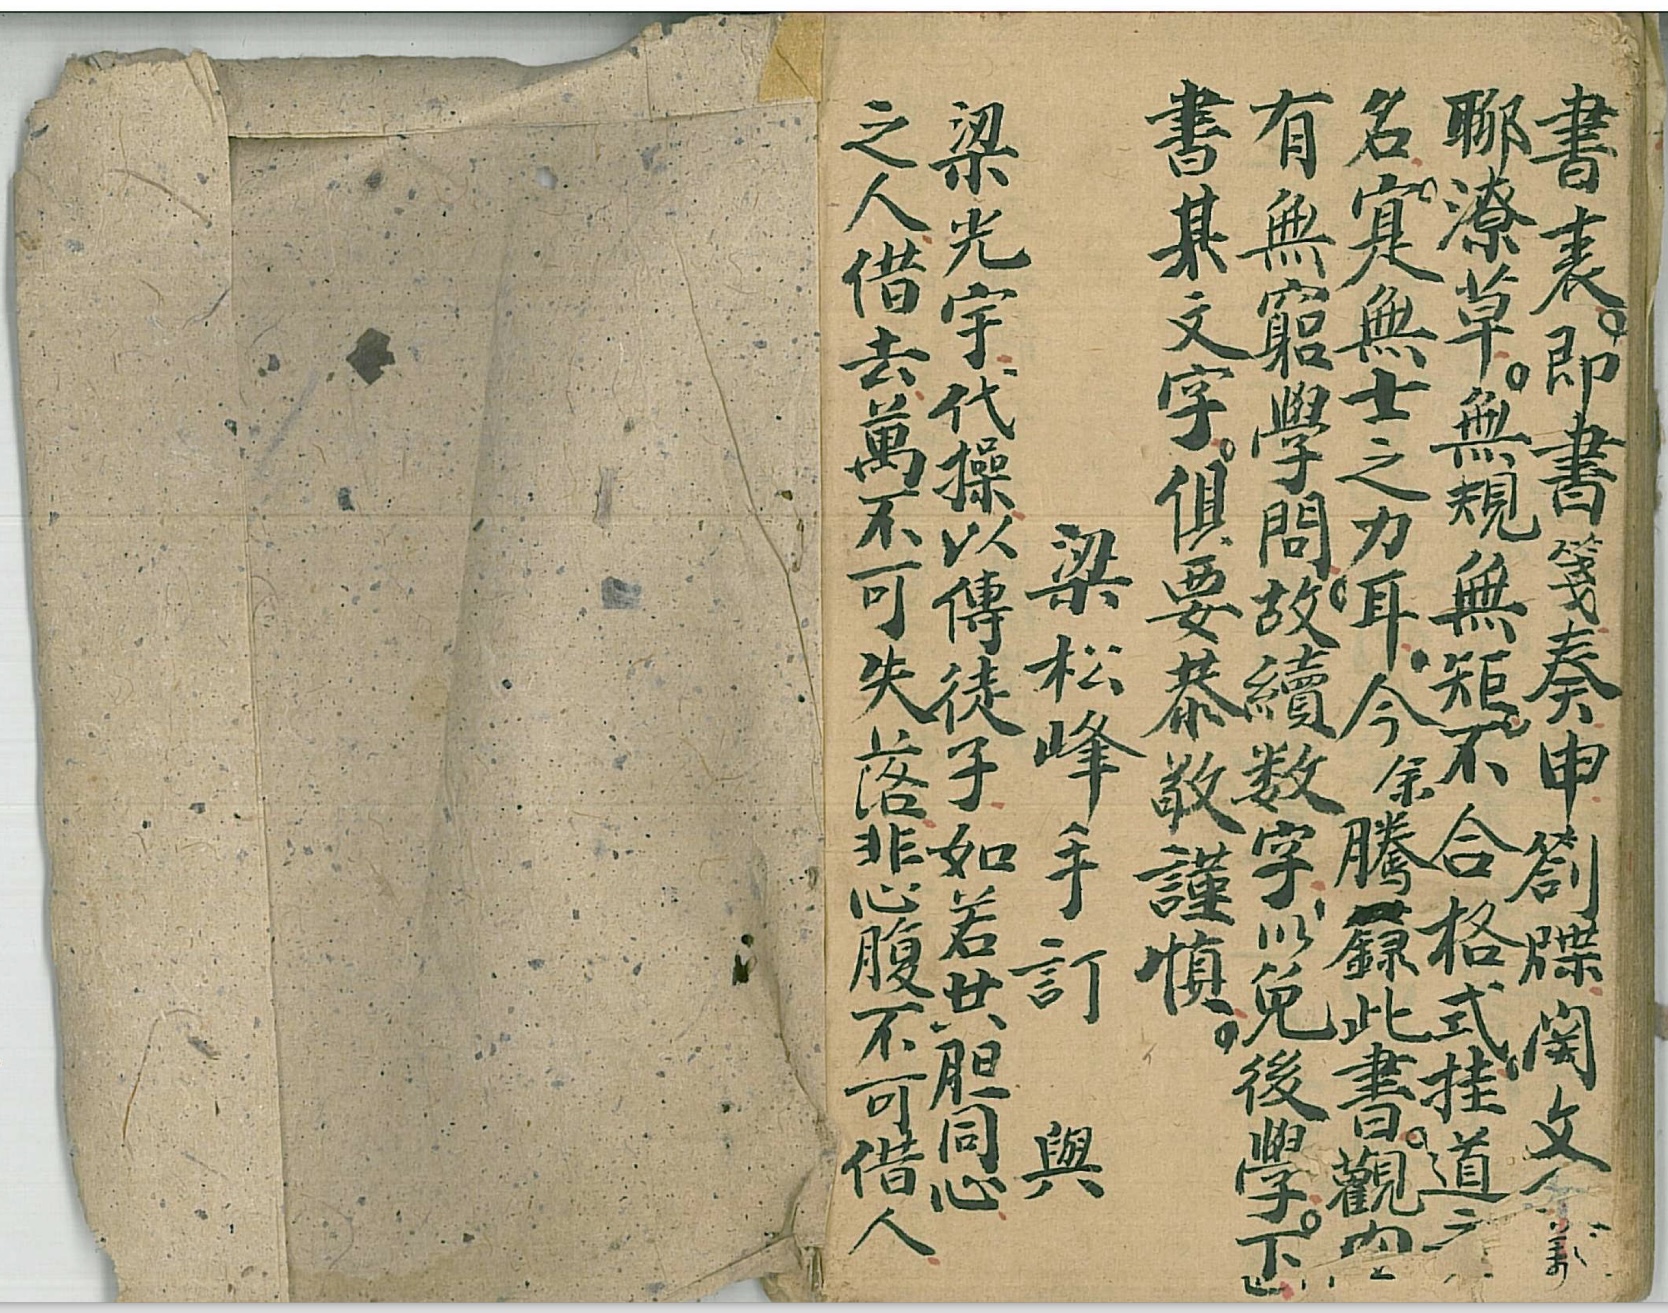 書表。即書箋奏申劄牒関文
聊潦草。無規無矩。不合格式。挂道之
名。寔無士之力耳。今余騰錄此書。觀內
有無窮學問。故續数字。以免後學。下
書其文字。俱要恭敬謹慎。
梁松峰手訂 與
梁光宇代操以傳徒子如若共胆同心
之人借去萬不可失落非心腹不可借人